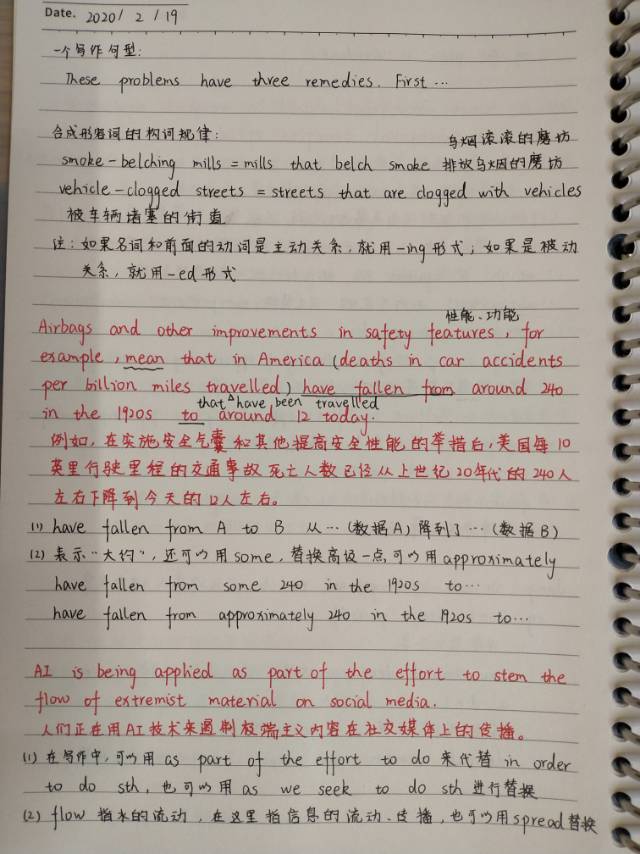 Date. 2020 / 2 / 19
一个写作句型:
These problems have three remedies. First …
合成形容词的构词规律: 乌烟滚滚的磨坊
smoke-belching mills = mills that belch smoke 排放乌烟的磨坊
vehicle-clogged streets = streets that are clogged with vehicles
被车辆堵塞的街道
注: 如果名词和前面的动词是主动关系, 就用-ing 形式; 如果是被动
关系, 就用-ed 形式
性能、功能
Airbags and other improvements in safety features, for
example, mean that in America (deaths in car accidents
per billion miles travelled) have fallen from around 240
that have been travelled
in the 1920s to around 12 today.
例如, 在实施安全气囊和其他提高安全性能的举措后, 美国每10
英里行驶里程的交通事故死亡人数已经从上世纪20年代的240人
左右下降到今天的12人左右。
(1) have fallen from A to B 从…(数据A) 降到了…(数据B)
(2) 表示“大约”, 还可以用some, 替换高级一点可以用approximately
have fallen from some 240 in the 1920s to…
have fallen from approximately 240 in the 1920s to…
AI is being applied as part of the effort to stem the
flow of extremist material on social media.
人们正在用AI技术来遏制极端主义内容在社交媒体上的传播。
(1) 在写作中, 可以用 as part of the effort to do 来代替 in order
to do sth, 也可以用 as we seek to do sth 进行替换
(2) flow 指水的流动, 在这里指信息的流动、传播, 也可以用spread替换